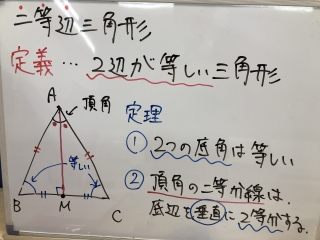 二等辺三角形
定義…2辺が等しい三角形
A
頂角
等しい
B
M
C
定理
① 2つの底角は等しい
② 頂角の二等分線は、
底辺を垂直に2等分する。